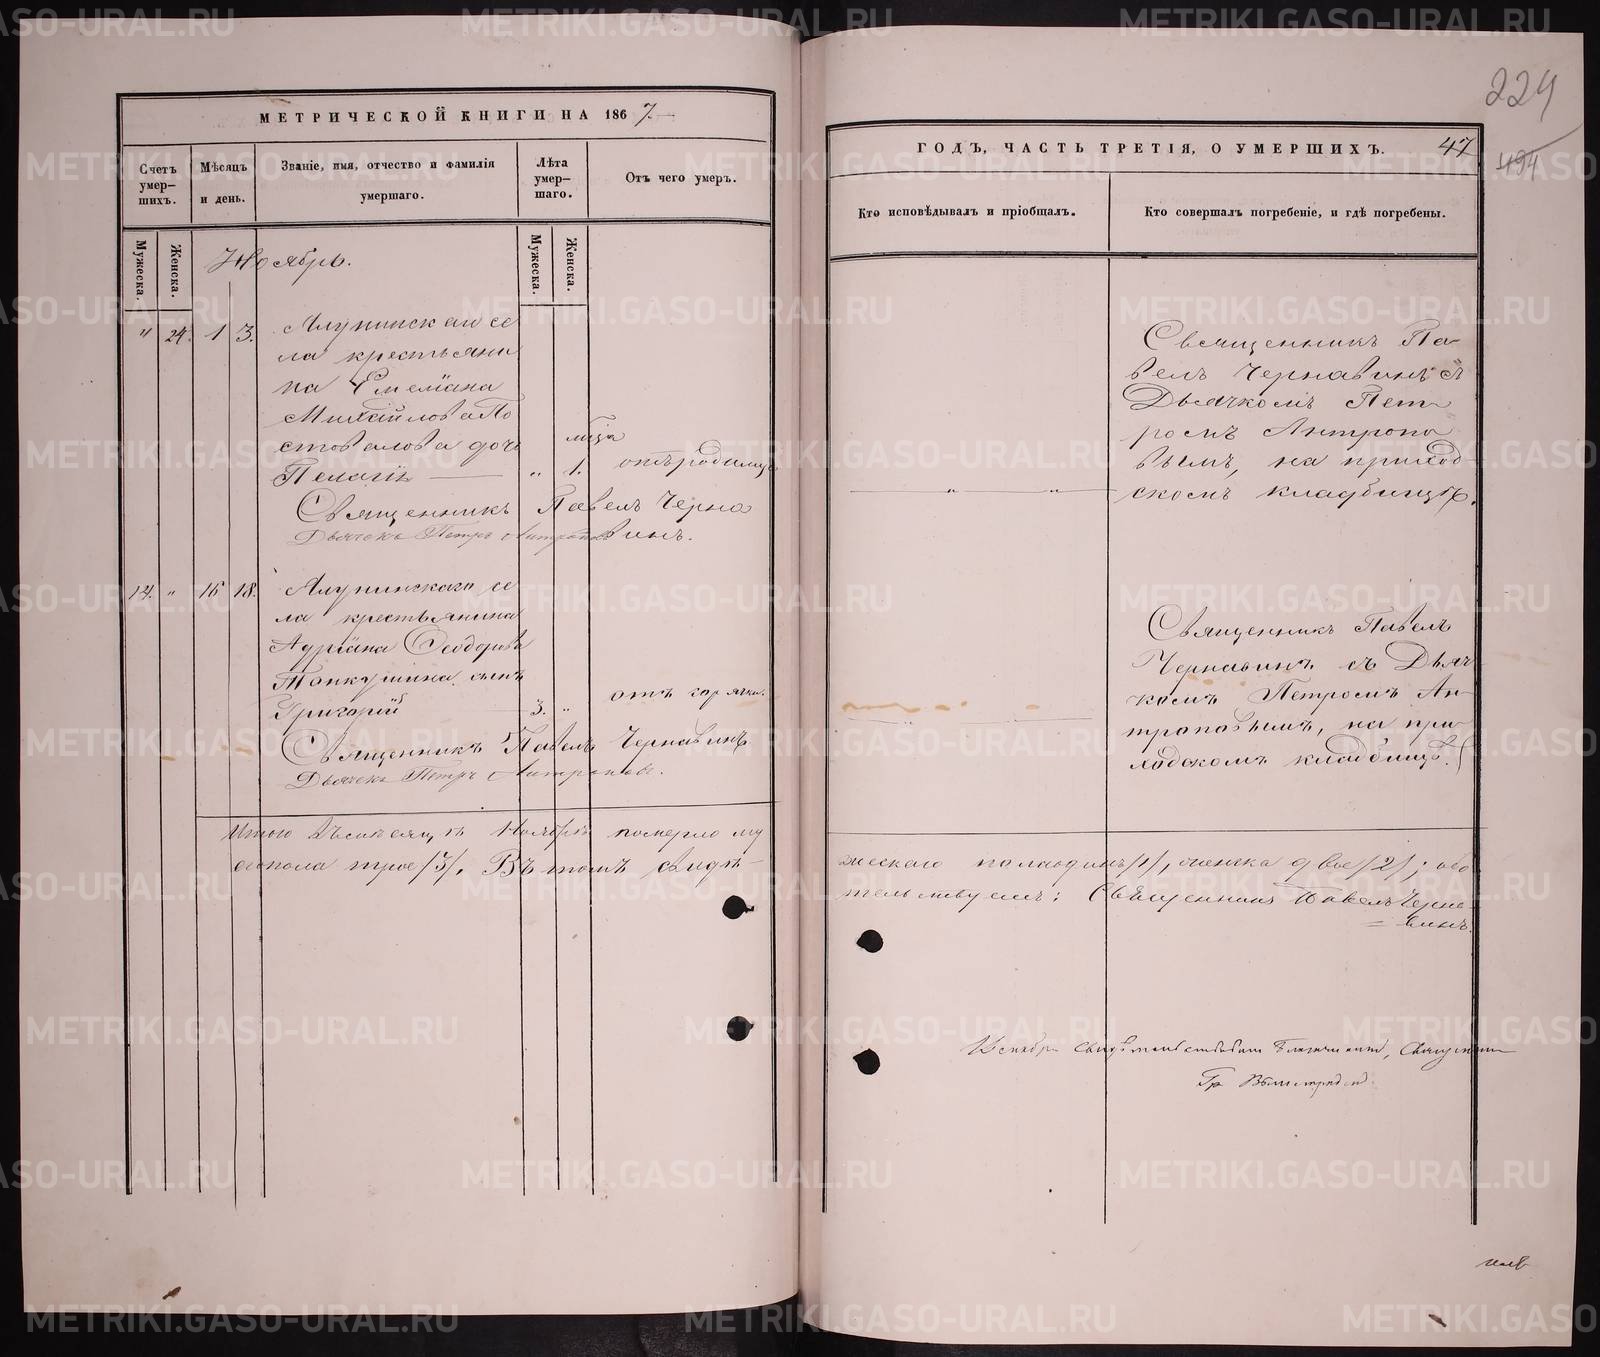 МЕТРИЧЕСКОЙ КНИГИ НА 1867
Счетъ умер-шихъ.
Мѣсяцъ и день.
Званіе, имя, отчество и фамилія умершаго.
Лѣта умер-шаго.
Отъ чего умеръ.
Мужеска.
Женска.
Мужеска.
Женска.
Ноябрь.
" 24. 1 3.
се
ла крестьяни
на Емеліана
Михайлова По
стовалова дочь
Пелагія
мѣсяца
" 1. отъ родимца
Священникъ Павелъ Черна
винъ.
Дьячекъ Петръ Антроповъ
14. " 16 18.
Алупинскаго се
ла крестьянина
Адріана Ѳеодорова
сынъ
Григорій 3. " отъ горячки.
Священникъ Павелъ Чернавинъ
Дьячекъ Петръ Антроповъ.
Итого въ мѣсяцѣ Ноябрѣ померло му
трое /3/. Въ томъ свидѣ-
224
494
ГОДЪ, ЧАСТЬ ТРЕТІЯ, О УМЕРШИХЪ. 47
Кто исповѣдывалъ и пріобщалъ.
Кто совершалъ погребеніе, и гдѣ погребены.
Священникъ Па-
велъ Чернавинъ съ
Дьячкомъ Пет
ромъ Антропо
вымъ, на приход-
скомъ кладбищѣ.
Священникъ Павелъ
Чернавинъ съ Дьяч-
комъ Петромъ Ан-
троповымъ, на при
ходскомъ кладбищѣ.
жескаго пола одинъ /1/, женска двое /2/; обо
тельствуемъ: Священникъ Павелъ Черна-
= винъ.
METRIKI.GASO-URAL.RU